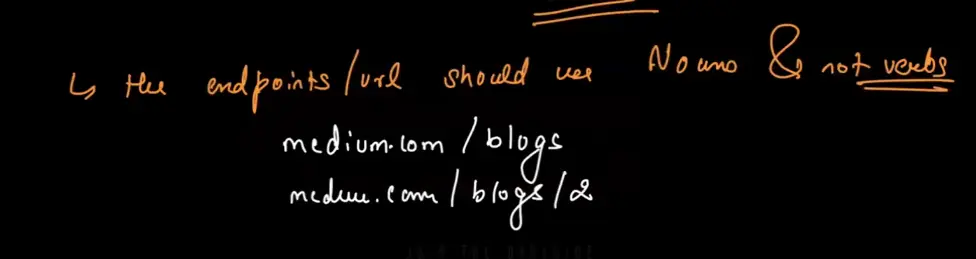 ↳ the endpoints/url should use Nouns & not verbs
medium.com/blogs
medium.com/blogs/2